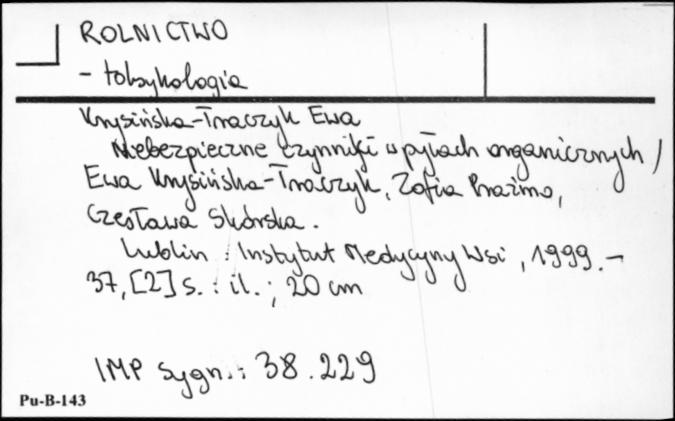 ROLNICTWO
- toksykologia
Krysińska-Traczyk Ewa
Niebezpieczne czynniki w pyłach organicznych /
Ewa Krysińska-Traczyk, Zofia Prażmo,
Czesława Skórska.
Lublin : Instytut Medycyny Wsi, 1999. -
37, [2] s. : il. ; 20 cm
IMP sygn.: 38.229
Pu-B-143